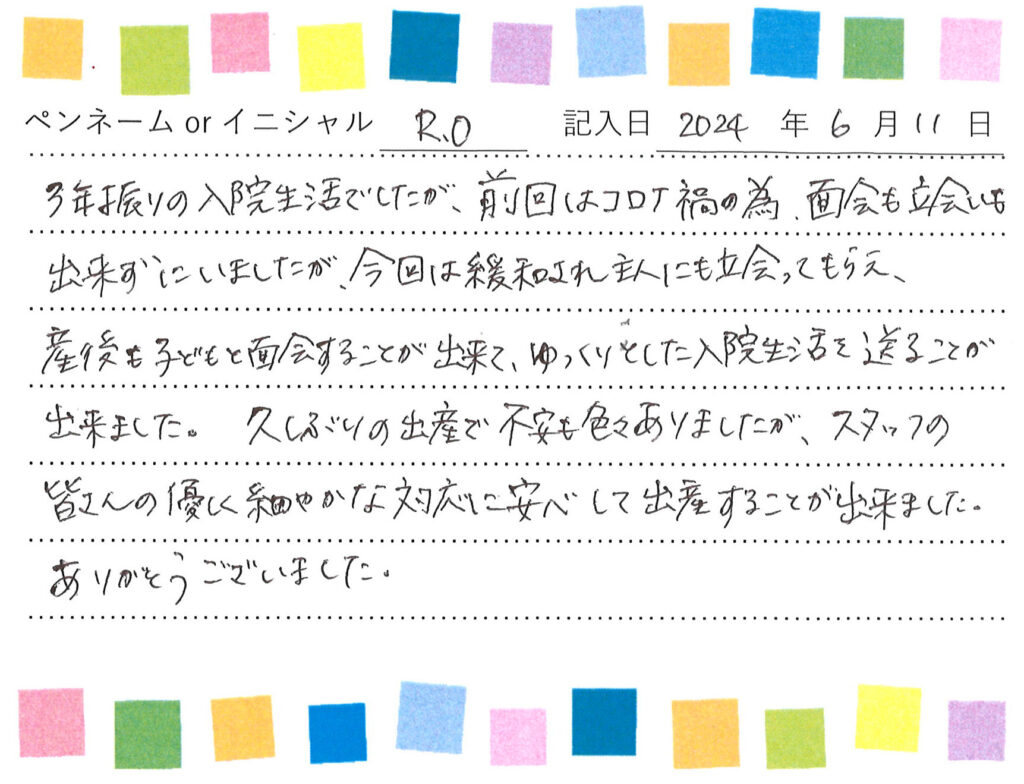 ペンネーム or イニシャル R.O 記入日 2024 年 6 月 11 日
3年振りの入院生活でしたが、前回はコロナ禍の為、面会も立会いも
出来ずにいましたが、今回は緩和され主人にも立会ってもらえ、
産後も子どもと面会することが出来て、ゆっくりとした入院生活を送ることが
出来ました。 久しぶりの出産で不安も色々ありましたが、スタッフの
皆さんの優しく細やかな対応に安心して出産することが出来ました。
ありがとうございました。